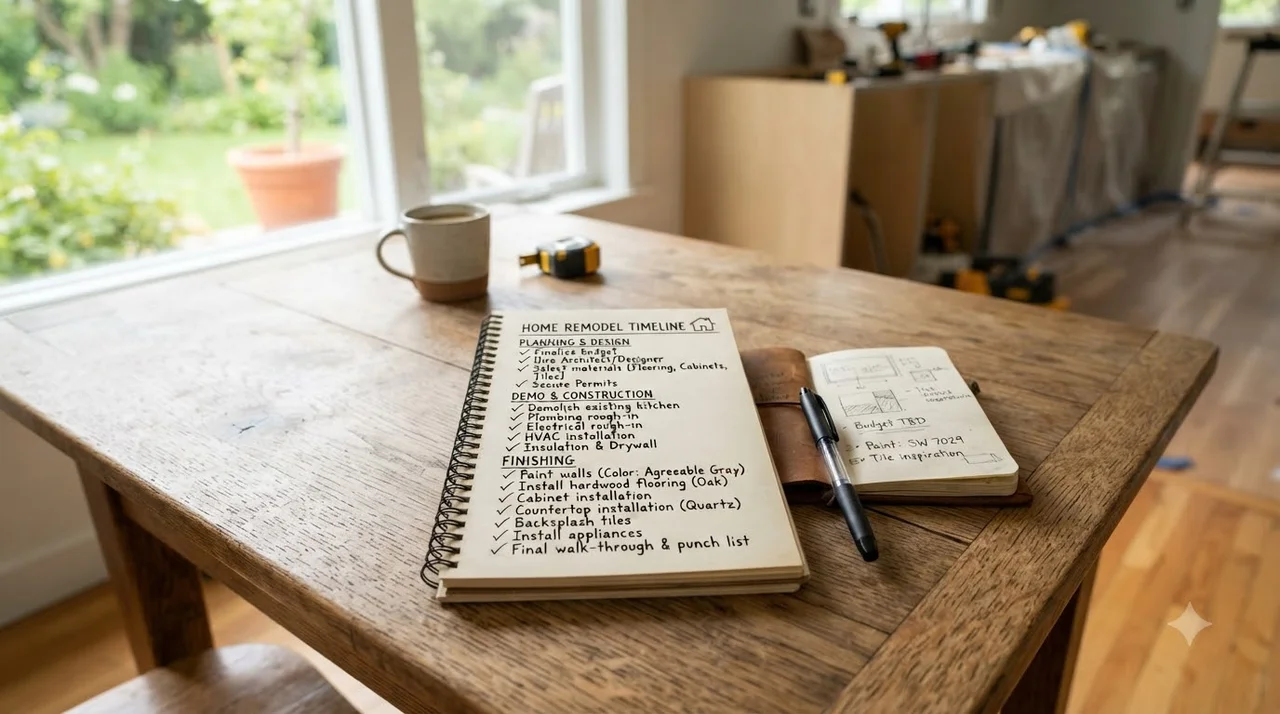 HOME REMODEL TIMELINE
PLANNING & DESIGN
✓ Finalize Budget
✓ Hire Architect/Designer
✓ Select materials (Flooring, Cabinets,
Tiles)
✓ Secure Permits
DEMO & CONSTRUCTION
✓ Demolish existing kitchen
✓ Plumbing rough-in
✓ Electrical rough-in
✓ HVAC installation
✓ Insulation & Drywall
FINISHING
✓ Paint walls (Color: Agreeable Gray)
✓ Install hardwood flooring (Oak)
✓ Cabinet installation
✓ Countertop installation (Quartz)
✓ Backsplash tiles
✓ Install appliances
✓ Final walk-through & punch list
- Budget TBD
- Paint: SW 7029
Tile inspiration